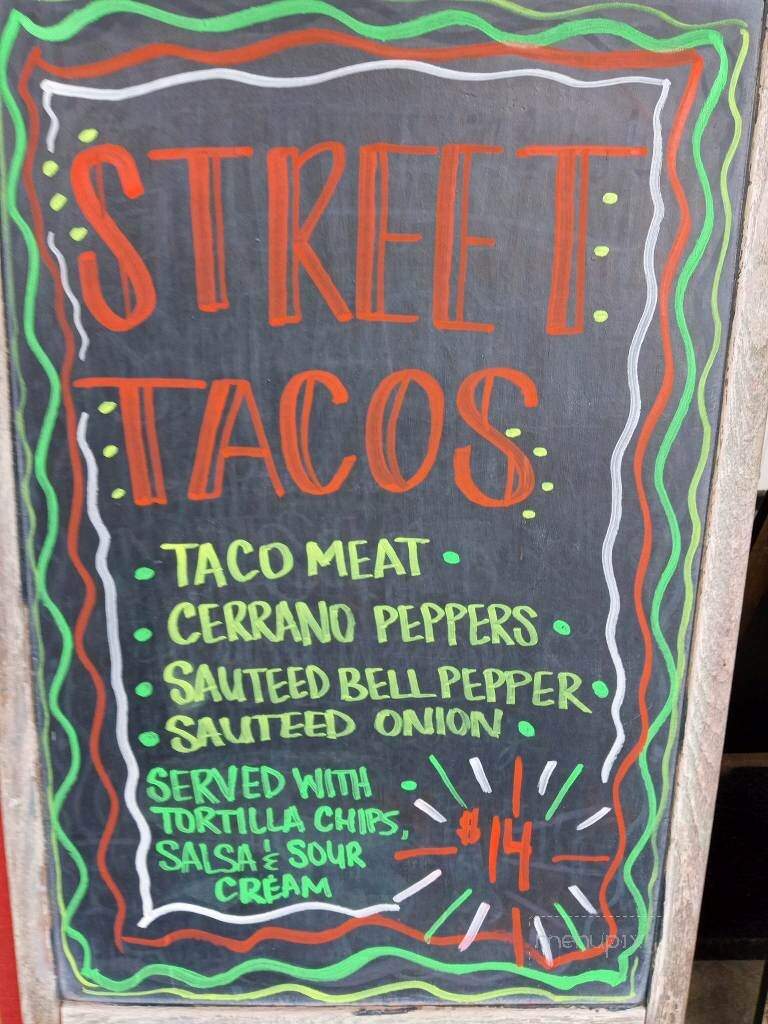 STREET
TACOS
• TACO MEAT •
• CERRANO PEPPERS •
• SAUTEED BELL PEPPER •
• SAUTEED ONION •
SERVED WITH •
TORTILLA CHIPS,
SALSA & SOUR
CREAM
$14
menupix